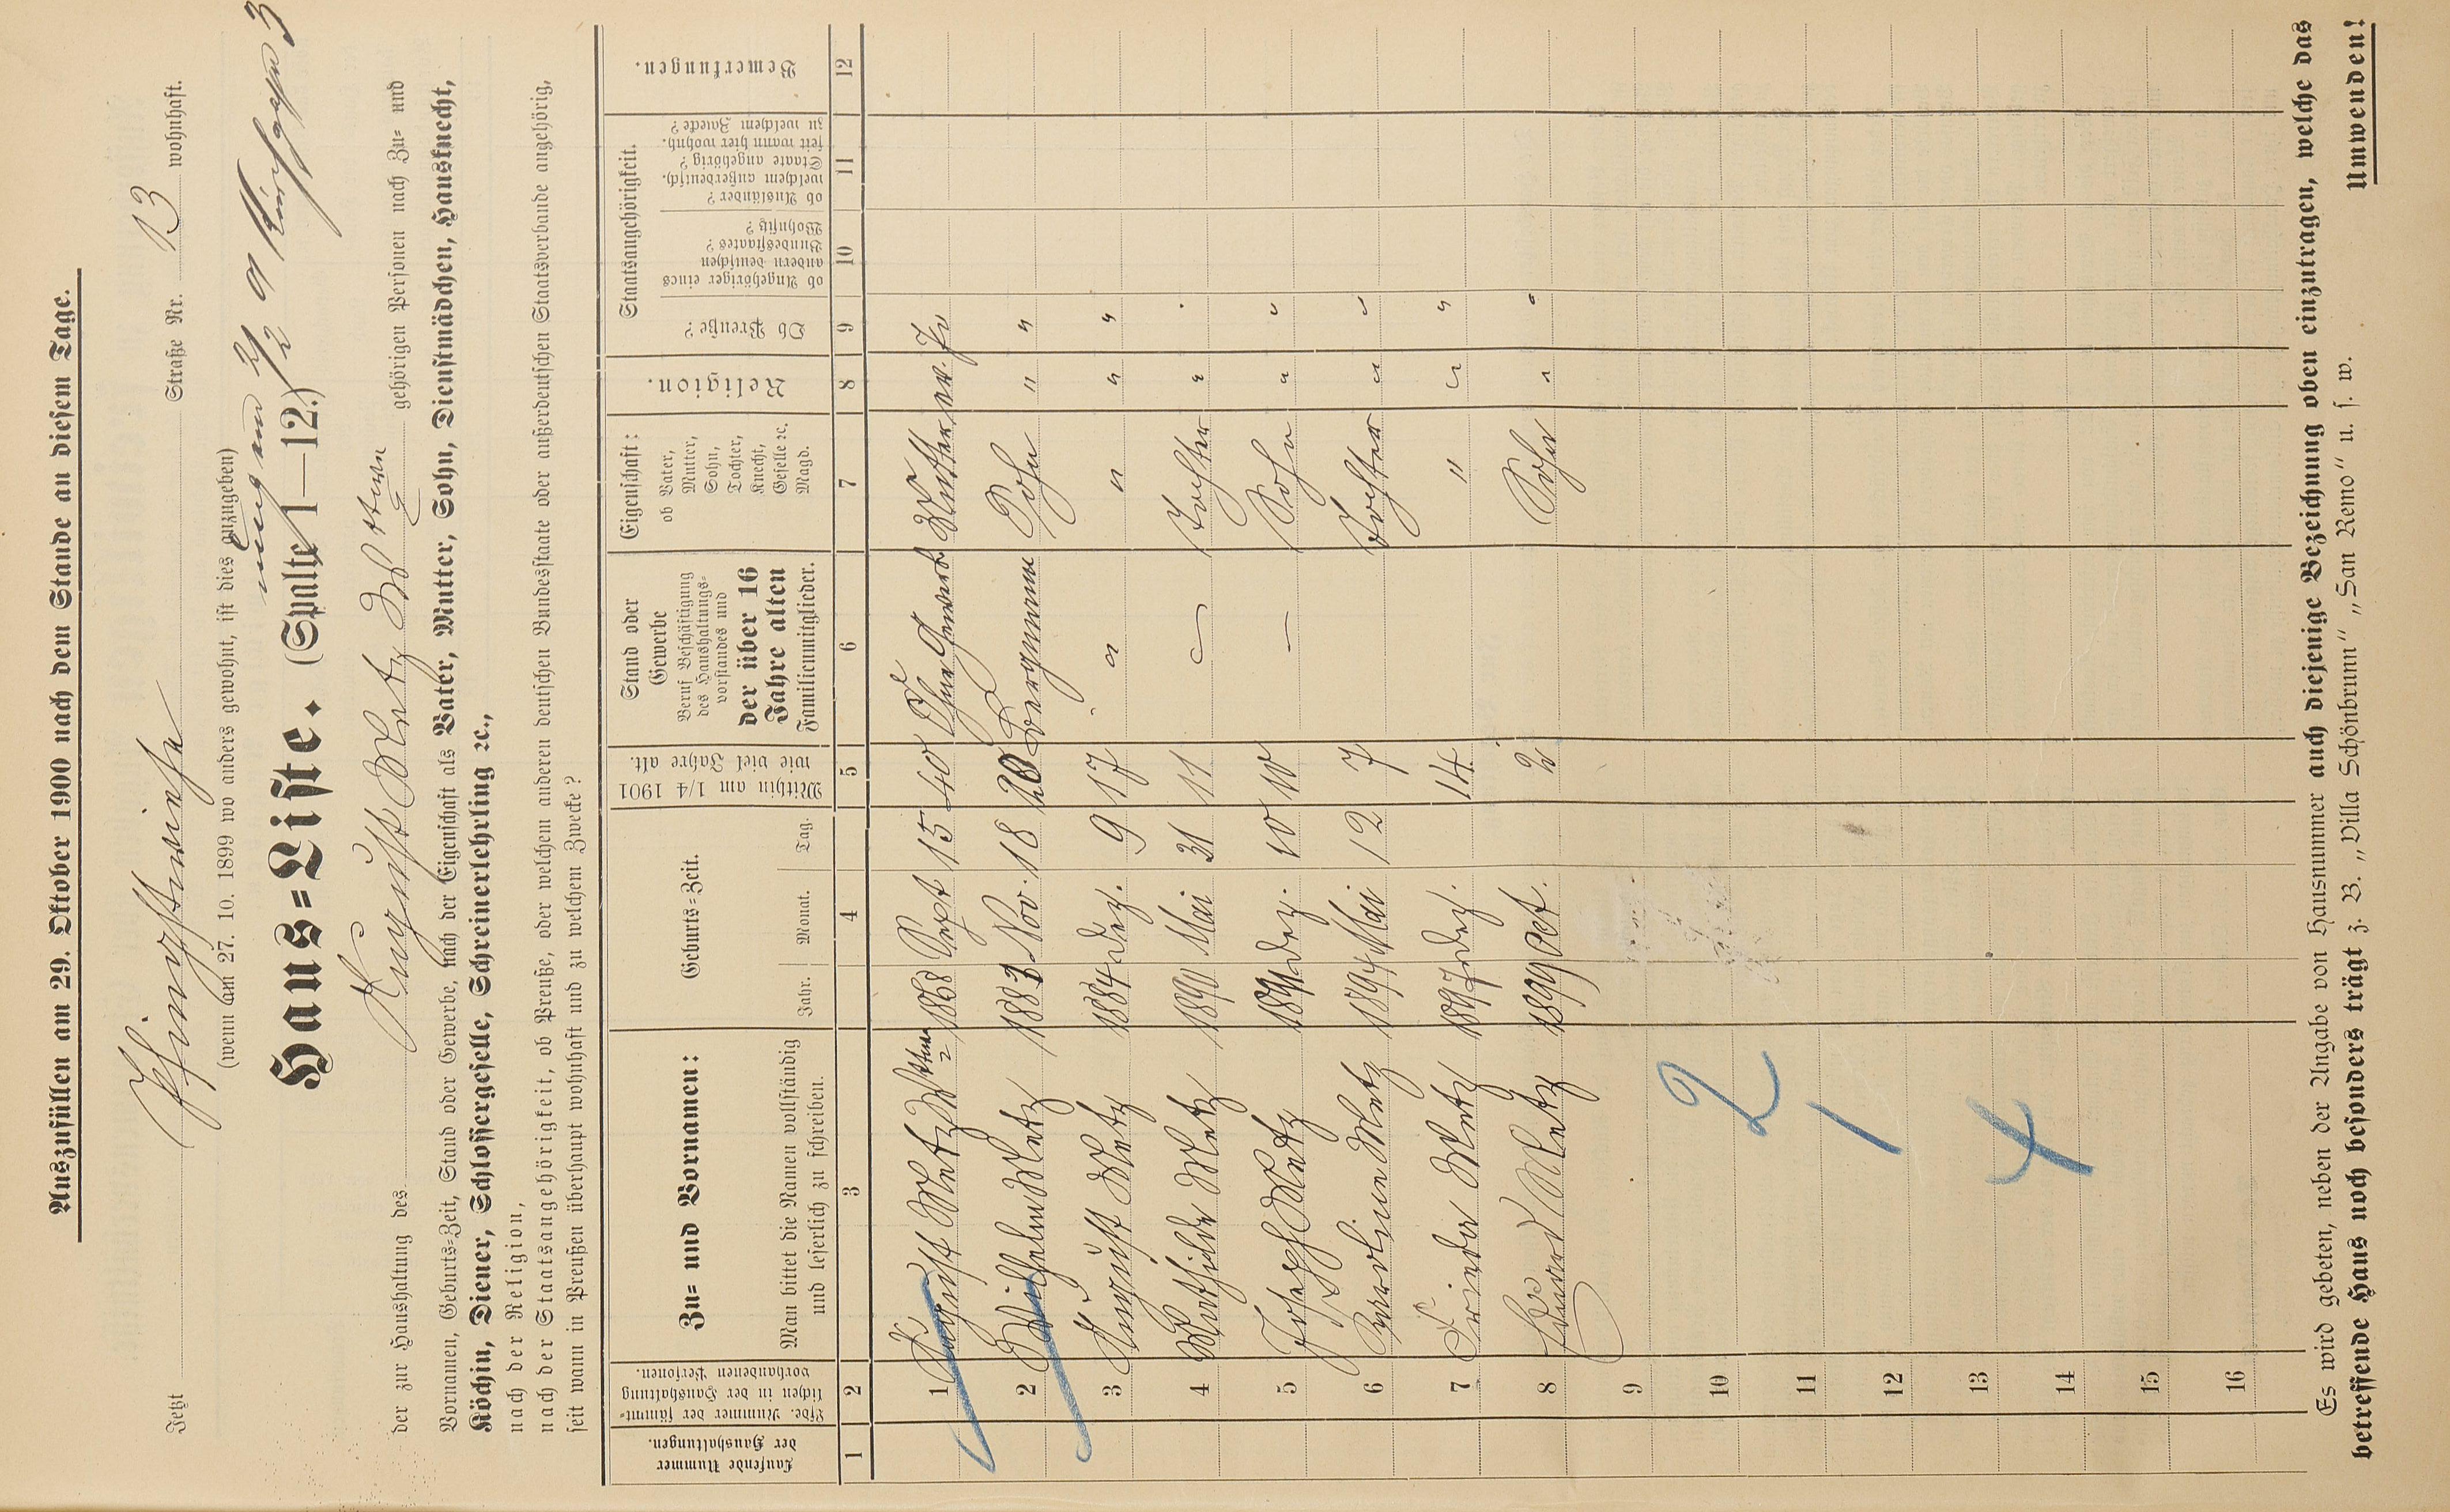 Auszufüllen am 29. Oktober 1900 nach dem Stande an diesem Tage.
Jetzt Pfingstweide Straße Nr. 13 wohnhaft.
(wenn am 27. 10. 1899 wo anders gewohnt, ist dies anzugeben)
Haus=Liste. (Spalte 1—12.)
der zur Haushaltung des August Metz Wttwe gehörigen Personen nach Zu= und
Vornamen, Geburts=Zeit, Stand oder Gewerbe, nach der Eigenschaft als Vater, Mutter, Sohn, Dienstmädchen, Hausknecht,
Köchin, Diener, Schlossergeselle, Schreinerlehrling ꝛc.,
nach der Religion,
nach der Staatsangehörigkeit, ob Preuße, oder welchem anderen deutschen Bundesstaate oder außerdeutschen Staatsverbande angehörig,
seit wann in Preußen überhaupt wohnhaft und zu welchem Zwecke?
Laufende Nummer der Haushaltungen.
Lfde. Nummer der sämmtlichen in der Haushaltung vorhandenen Personen.
Zu= und Vornamen:
Man bittet die Namen vollständig und leserlich zu schreiben.
Geburts=Zeit.
Jahr. Monat. Tag.
Mithin am 1/4 1901 wie viel Jahre alt.
Stand oder Gewerbe
Beruf Beschäftigung des Haushaltungsvorstandes und
der über 16 Jahre alten
Familienmitglieder.
Eigenschaft:
ob Vater, Mutter, Sohn, Tochter, Knecht, Geselle ꝛc. Magd.
Religion.
Staatsangehörigkeit.
Ob Preuße?
ob Angehöriger eines andern deutschen Bundesstaates? Wohnsitz?
ob Ausländer? welchem außerdeutsch. Staate angehörig? seit wann hier wohnh. zu welchem Zwecke?
Bemerkungen.
1 2 3 4 5 6 7 8 9 10 11 12
1 August Metz Wttwe 1868 Sept 15 40 Ohne Gewerb Mutter ev. Pr
2 Wilhelm Metz 1883 Nov. 18 20 Bergmann Sohn " "
3 August Metz 1884 Dez. 9 17 " " " "
4 Mathilde Metz 1890 Mai 31 11 — Tochter "
5 Joseph Metz 1891 Dez. 10 10 — Sohn " "
6 Karoline Metz 1894 Mai 12 7 Tochter " "
7 Metz 1897 Dez. 14 " " "
8 Eduard Metz 1899 Oct. 2 Sohn "
9
10
11
12
13
14
15
16
2
1
4
Es wird gebeten, neben der Angabe von Hausnummer auch diejenige Bezeichnung oben einzutragen, welche das
betreffende Haus noch besonders trägt z. B. „Villa Schönbrunn" „San Remo" u. s. w.
Umwenden!